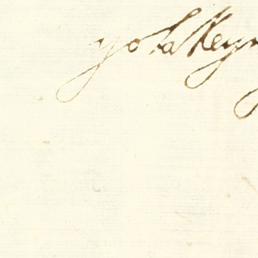 yo la Reyn